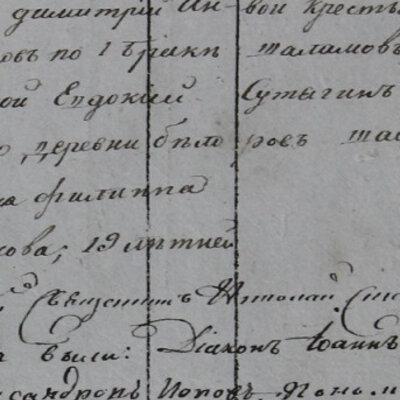 димитрій Ин-вой кресть
овъ по 1 бракѣ шаламовъ
ой Евдокіи Сутягин
деревни бѣло ровъ ша
на филиппа
кова, 19 лѣтней
Священникъ Николай
были: Діаконъ Іоаннъ
сандропъ Поповъ, Поно